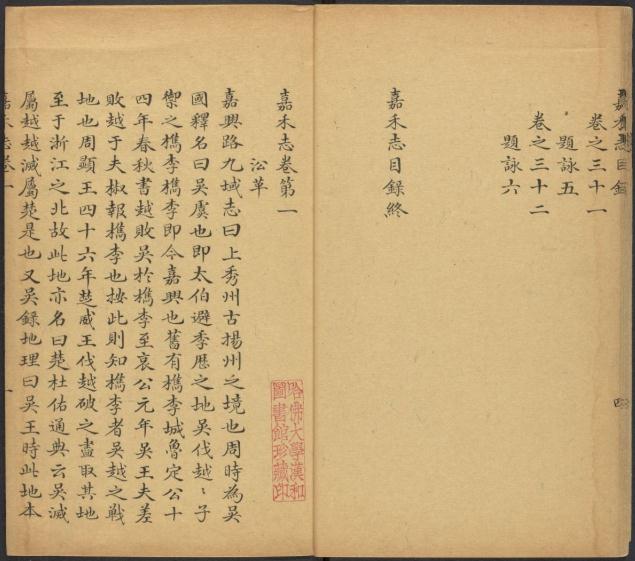 嘉禾志目錄
卷之三十一
題詠五
卷之三十二
題詠六
嘉禾志目錄終
四
哈佛大學漢和
圖書館珍藏印
嘉禾志卷第一
沿革
嘉興路九域志曰上秀州古揚州之境也周時為吳
國釋名曰吳虞也即太伯避季歷之地吳伐越〻子
禦之檇李檇李即今嘉興也舊有檇李城魯定公十
四年春秋書越敗吳於檇李至哀公元年吳王夫差
敗越于夫椒報檇李也按此則知檇李者吳越之戰
地也周顯王四十六年楚威王伐越破之盡取其地
至于浙江之北故此地亦名曰楚杜佑通典云吳滅
屬越越滅屬楚是也又吳錄地理曰吳王時此地本
嘉禾志卷一
一